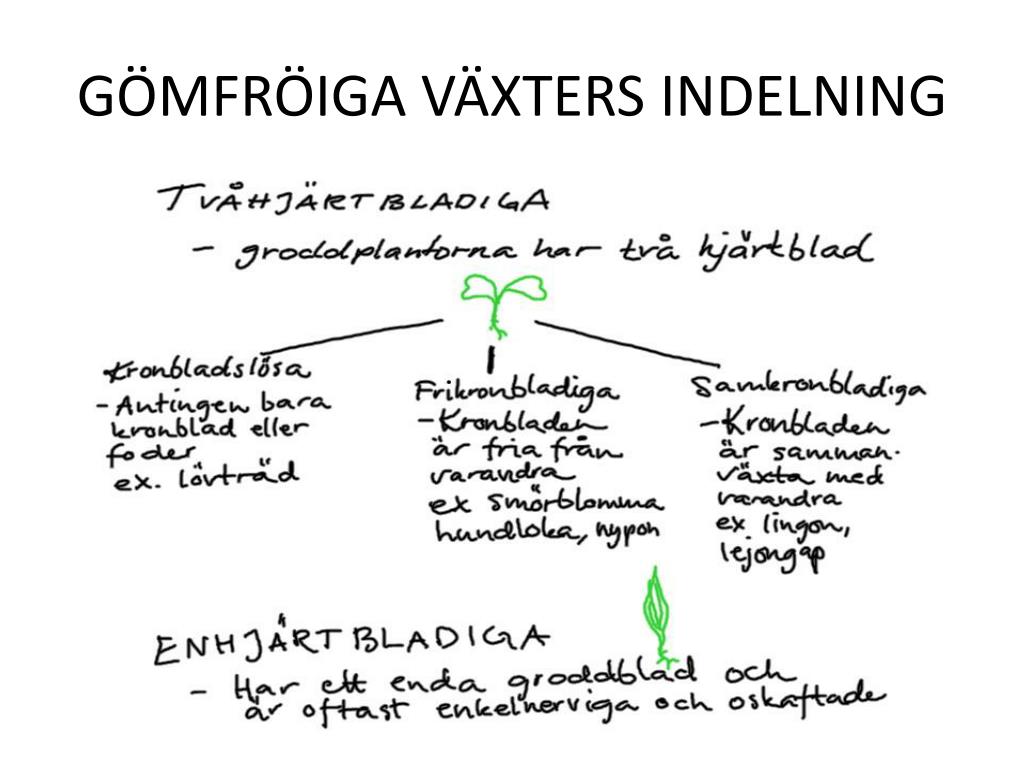 GÖMFRÖIGA VÄXTERS INDELNING
TVÅHJÄRTBLADIGA
- groddplantorna har två hjärtblad
Kronbladslösa
- Antingen bara
kronblad eller
foder
ex. lövträd
Frikronbladiga
- Kronbladen
är fria från
varandra
ex Smörblomma
hundloka, nypon
Samkronbladiga
- Kronbladen
är samman-
växta med
varandra
ex lingon,
lejongap
ENHJÄRTBLADIGA
- Har ett enda groddblad och
är oftast enkelnerviga och oskaftade